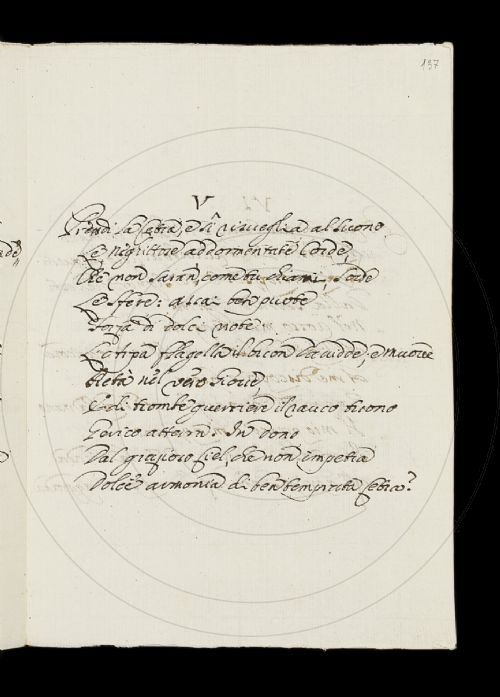 137
V
Prendi la Cetra, e si risveglia al suono
Le neghittose addormentate Corde,
Che non saran, come tu chiami, sorde
Le sfere: assai ben puote
Forza di dolci note
La ripa flagella il buon Davidde, e muove
Pietà nel vero Giove,
E di trombe guerriere il rauco suono
Gerico atterra: In dono
Dal grazioso Ciel, che non impetra
Dolce armonia di ben temprata Cetra?